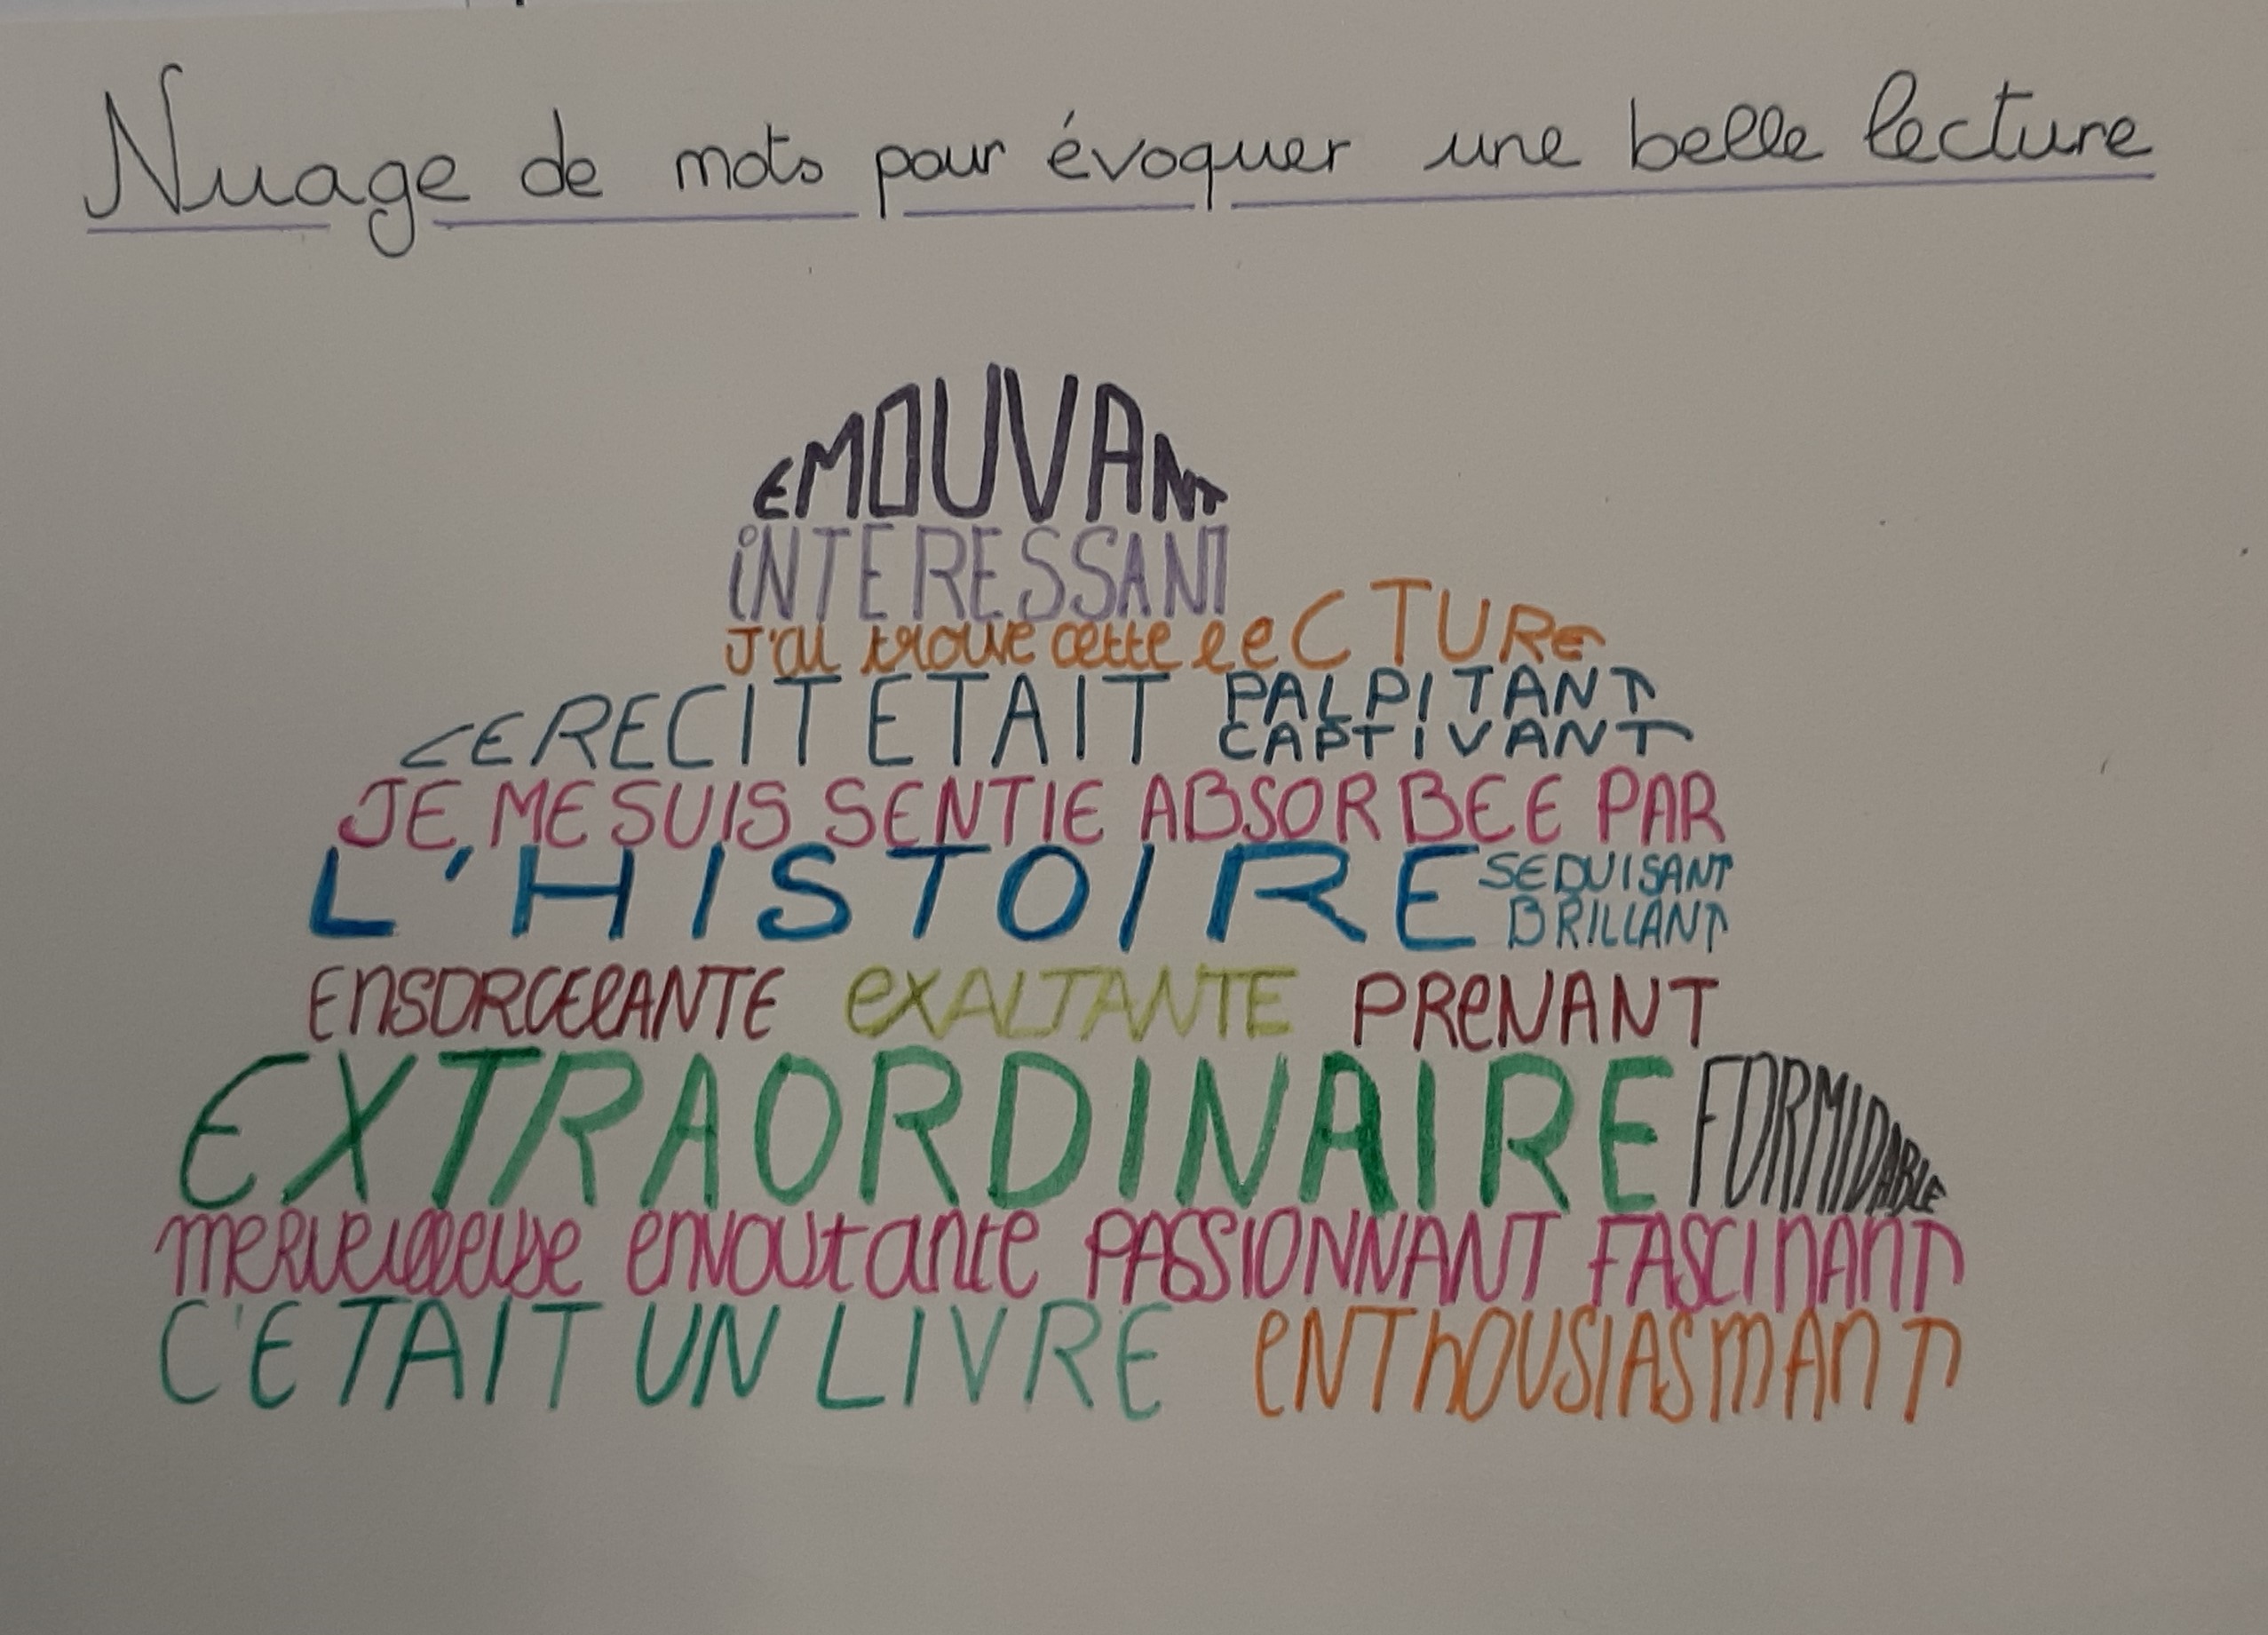 Nuage de mots pour évoquer une belle lecture
EMOUVANT
iNTERESSANT
J'ai trouve cette leCTURe
CE RECIT ETAIT PALPITANT
CAPTIVANT
JE ME SUIS SENTIE ABSORBEE PAR
L'HISTOIRE SEDUISANT
BRILLANT
ENSORCElANTE eXALTANTE PReNANT
EXTRAORDINAIRE FORMIDABLE
meRveilleuse envoutante PASSIONNANT FASCInAnT
C'ETAIT UN LIVRE eNThOUSIASmAnT